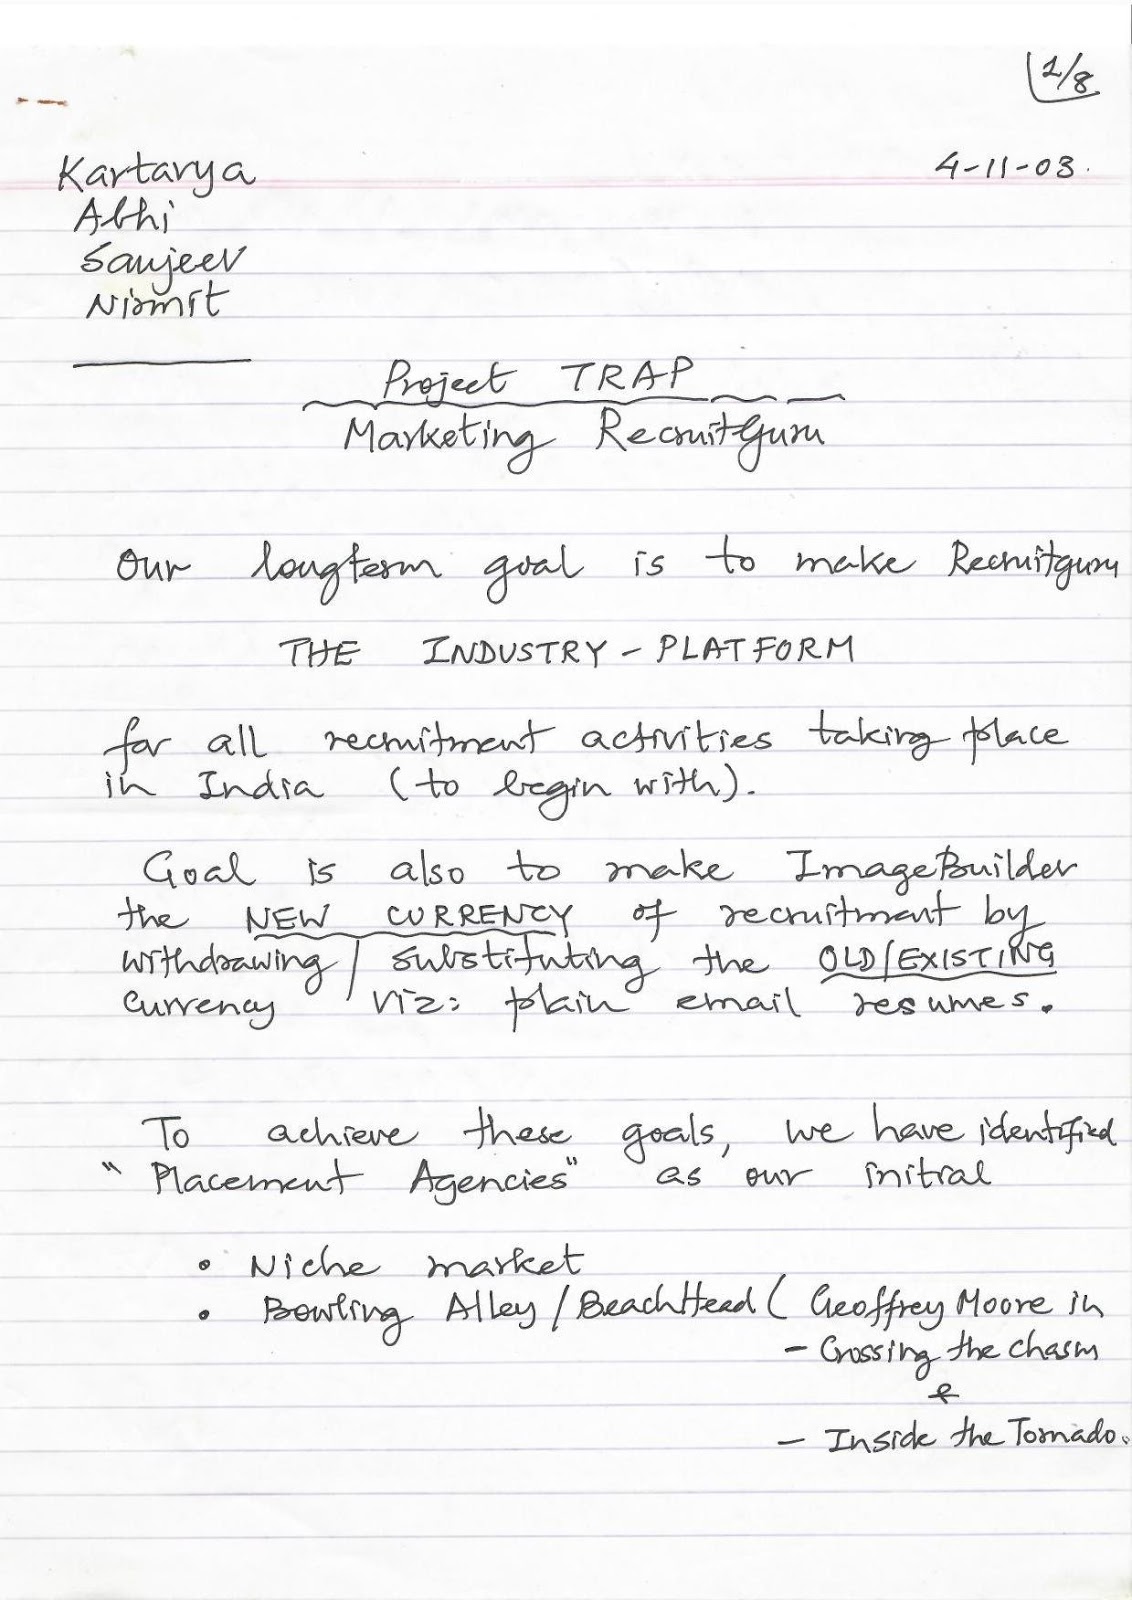 1/8
4-11-03.
Kartavya
Abhi
Sanjeev
Nirmit
Project TRAP
Marketing RecruitGuru
Our longterm goal is to make Recruitguru
THE INDUSTRY - PLATFORM
for all recruitment activities taking place
in India (to begin with).
Goal is also to make ImageBuilder
the NEW CURRENCY of recruitment by
withdrawing / substituting the OLD/EXISTING
currency viz: plain email resumes.
To achieve these goals, we have identified
"Placement Agencies" as our initial
• Niche market
• Bowling Alley / BeachHead ( Geoffrey Moore in
- Crossing the chasm
&
- Inside the Tornado.